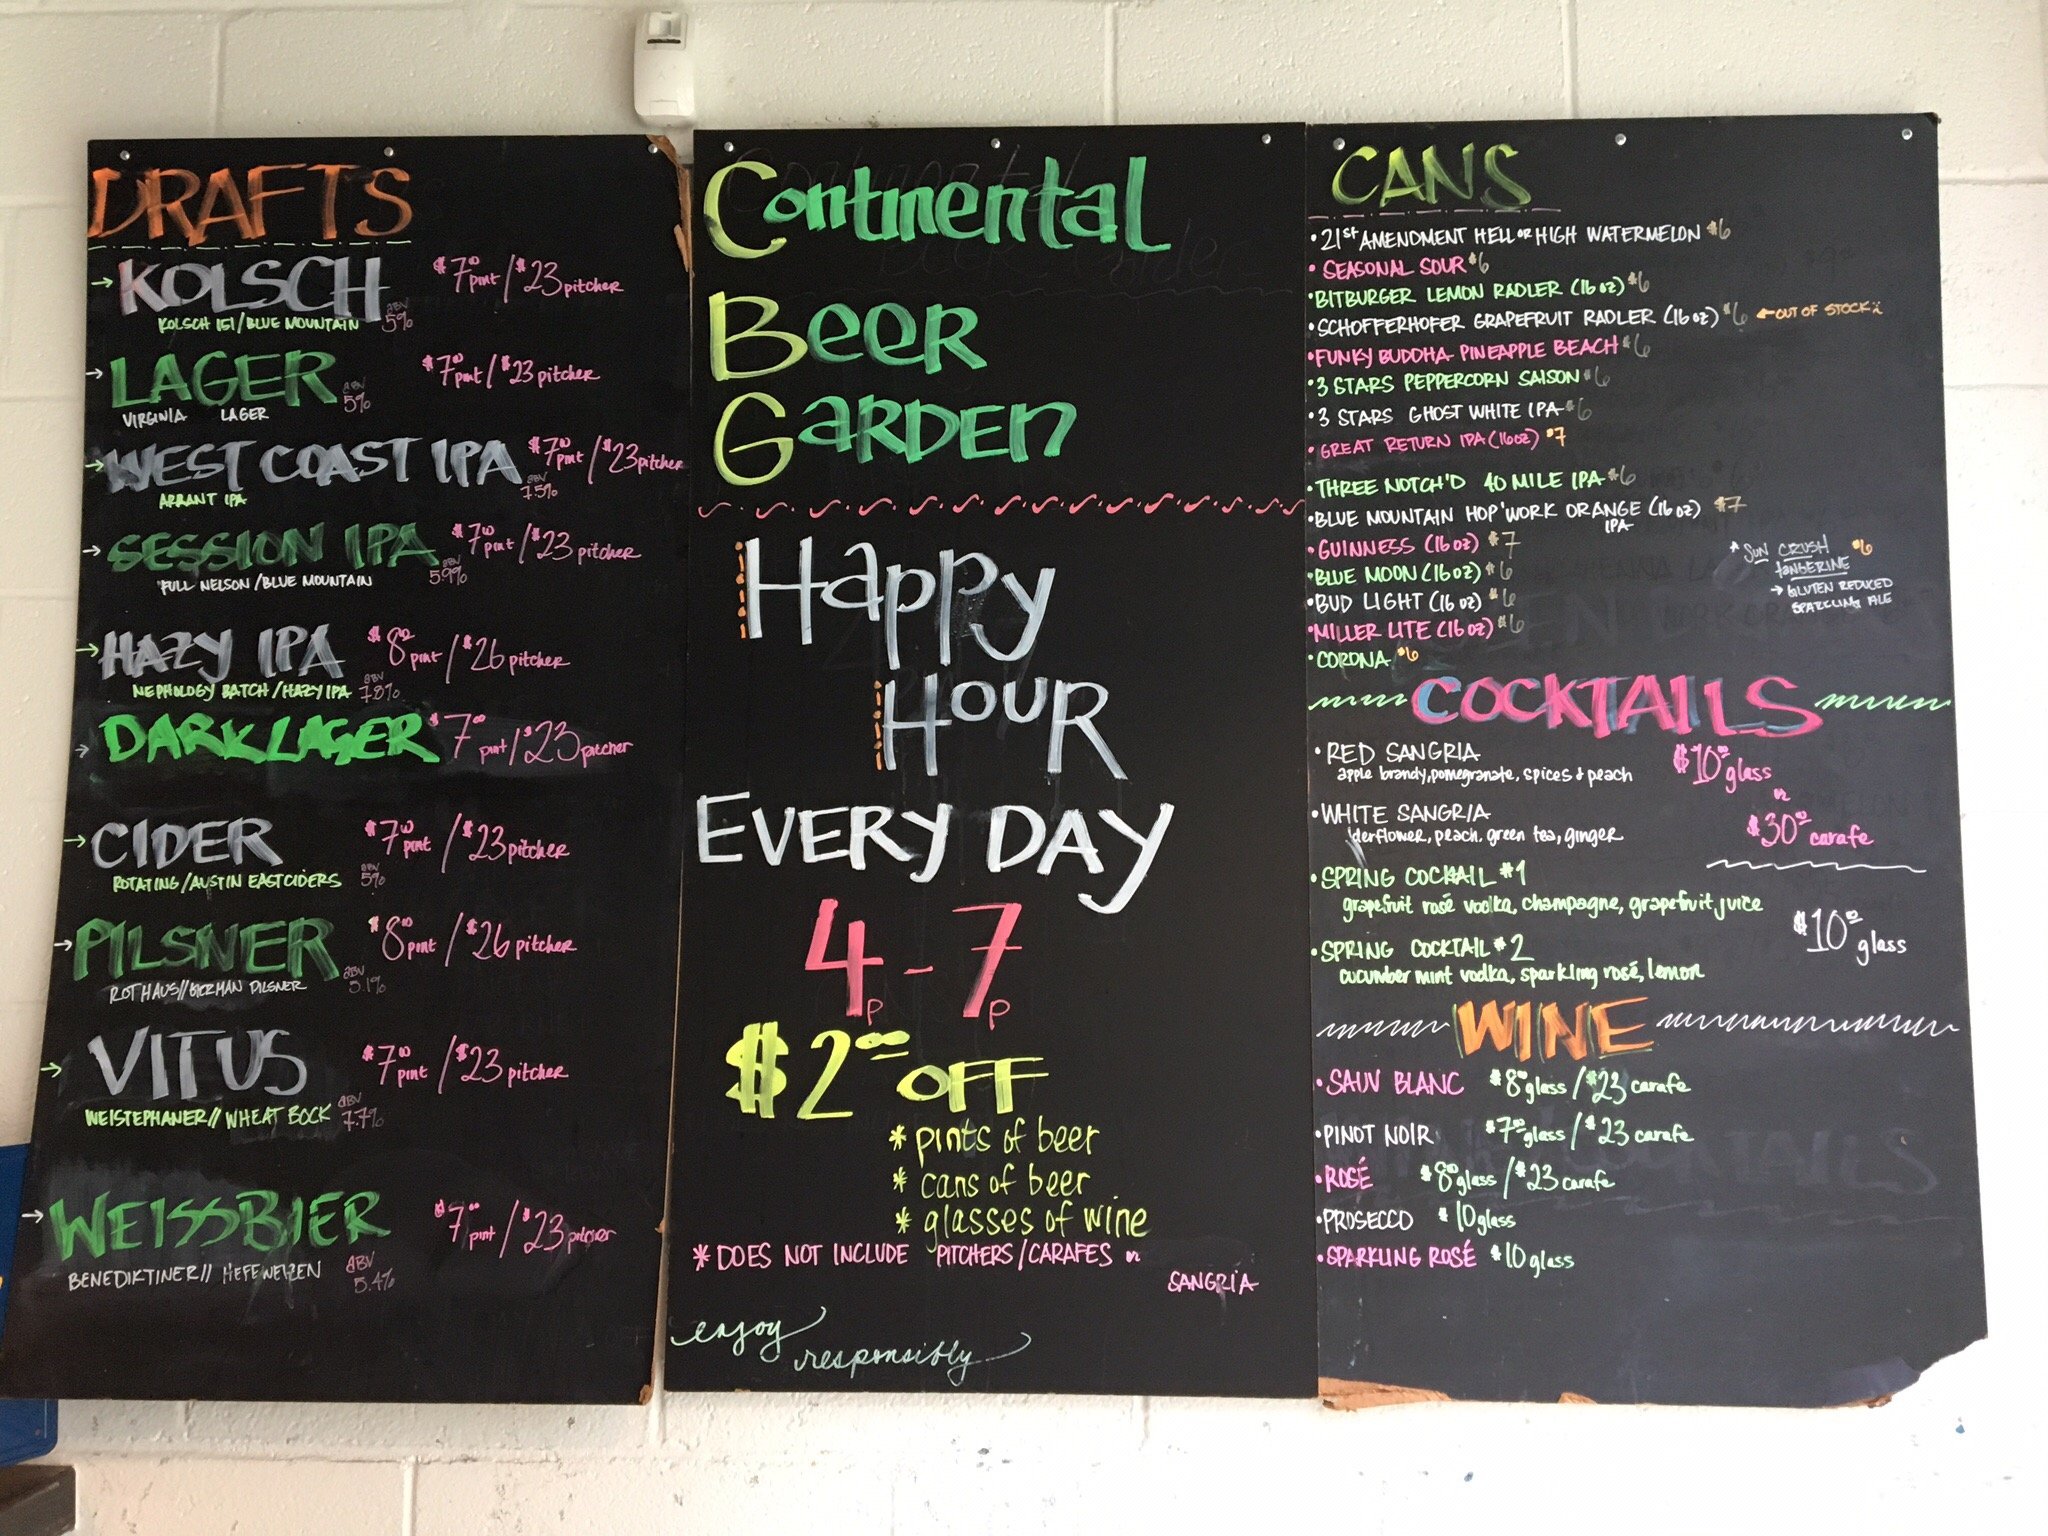 DRAFTS
KOLSCH $7.00 pint / $23 pitcher
KOLSCH 151 / BLUE MOUNTAIN ABV 5%
LAGER $7.00 pint / $23 pitcher
VIRGINIA LAGER ABV 5%
WEST COAST IPA $7.00 pint / $23 pitcher
ARRANT IPA ABV 7.5%
SESSION IPA $7.00 pint / $23 pitcher
FULL NELSON / BLUE MOUNTAIN ABV 5.9%
HAZY IPA $8.00 pint / $26 pitcher
NEPHOLOGY BATCH / HAZY IPA ABV 7.8%
DARK LAGER $7.00 pint / $23 pitcher
CIDER $7.00 pint / $23 pitcher
ROTATING / AUSTIN EASTCIDERS ABV 5%
PILSNER $8.00 pint / $26 pitcher
ROTHAUS // GERMAN PILSNER ABV 5.1%
VITUS $7.00 pint / $23 pitcher
WEISTEPHANER // WHEAT BOCK ABV 7.7%
WEISSBIER $7.00 pint / $23 pitcher
BENEDIKTINER // HEFEWEIZEN ABV 5.4%
Continental
Beer
Garden
Happy
Hour
EVERY DAY
4p - 7p
$2.00 OFF
* pints of beer
* cans of beer
* glasses of wine
* DOES NOT INCLUDE PITCHERS/CARAFES or
SANGRIA
enjoy
responsibly
CANS
• 21st AMENDMENT HELL or HIGH WATERMELON $6
• SEASONAL SOUR $6
• BITBURGER LEMON RADLER (16 oz) $6
• SCHOFFERHOFER GRAPEFRUIT RADLER (16 oz) $6 ← OUT OF STOCK
• FUNKY BUDDHA PINEAPPLE BEACH $6
• 3 STARS PEPPERCORN SAISON $6
• 3 STARS GHOST WHITE IPA $6
• GREAT RETURN IPA (16oz) $7
• THREE NOTCH'D 40 MILE IPA $6
• BLUE MOUNTAIN HOP'WORK ORANGE (16 oz) $7
IPA
• GUINNESS (16 oz) $7
• BLUE MOON (16 oz) $6
• BUD LIGHT (16 oz) $6
• MILLER LITE (16 oz) $6
• CORONA $6
* SUN CRUSH $6
tANGERINE
→ GLUTEN REDUCED
SPARKLING ALE
COCKTAILS
• RED SANGRIA $10.00 glass
apple brandy, pomegranate, spices & peach
or
• WHITE SANGRIA $30.00 carafe
lderflower, peach, green tea, ginger
• SPRING COCKTAIL #1
grapefruit rosé vodka, champagne, grapefruit juice
$10.00 glass
• SPRING COCKTAIL #2
cucumber mint vodka, sparkling rosé, lemon
WINE
• SAUV BLANC $8.00 glass / $23 carafe
• PINOT NOIR $7.00 glass / $23 carafe
• ROSÉ $8.00 glass / $23 carafe
• PROSECCO $10 glass
• SPARKLING ROSÉ $10 glass